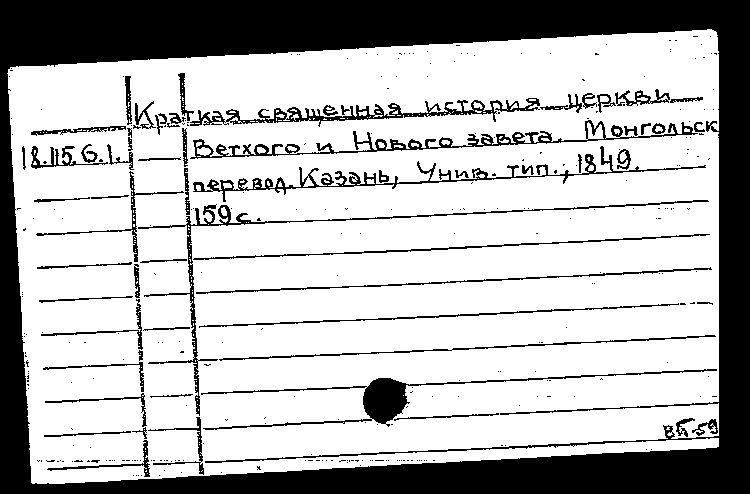 Краткая священная история церкви
18.115.6.1. Ветхого и Нового завета. Монгольск
перевод. Казань, Унив. тип., 1849.
159 с.